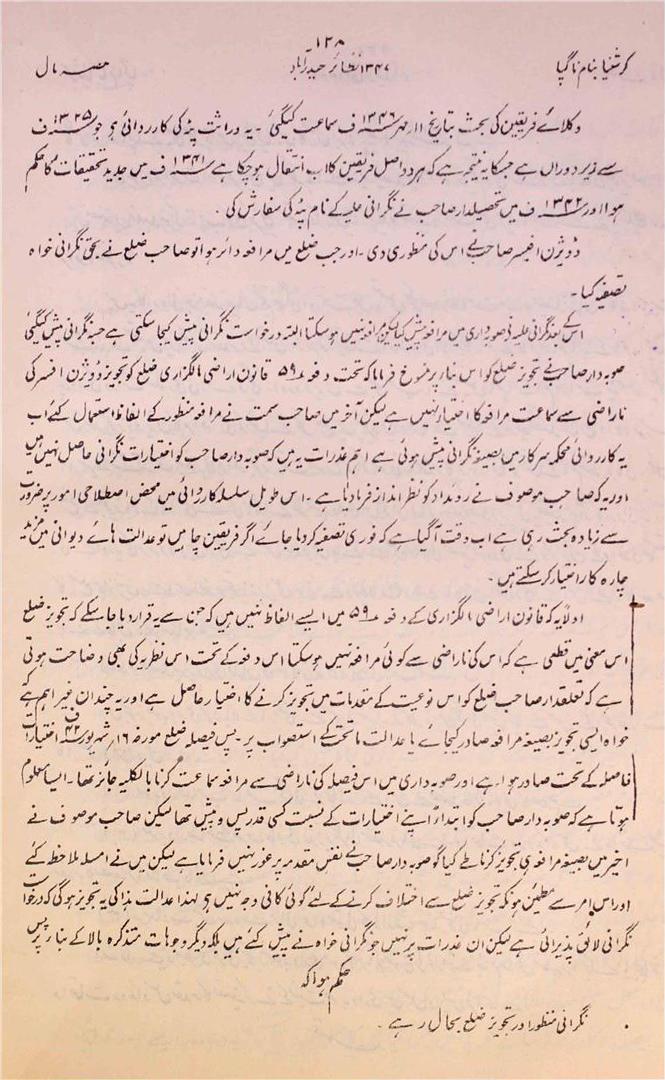 ۱۲۸
کرشنیا بنام ناگپا ۱۳۴۷ نظائر حیدرآباد حصہ مال
وکلائے فریقین کی بحث بتاریخ ۱۱ مہر ۱۳۴۶ف سماعت کیگئی۔ یہ وراثت پٹہ کی کارروائی ہو جو ۱۳۲۵ف
سے زیر دوراں ہے جسکا یہ نتیجہ ہے کہ ہر دو اصل فریقین کا اب انتقال ہوچکا ہے ۱۳۴۱ف میں جدید تحقیقات کا حکم
ہوا اور ۱۳۴۲ف میں تحصیلدار صاحب نے نگرانی علیہ کے نام پٹہ کی سفارش کی۔
ڈویژن افیسر صاحب نے اس کی منظوری دی۔ اور جب ضلع میں مرافعہ دائر ہوا تو صاحب ضلع نے بحق نگرانی خواہ
تصفیہ کیا۔
اس کے بعد نگرانی علیہ نے صوبہ داری میں مرافعہ پیش کیا لیکن مرافعہ نہیں ہوسکتا البتہ درخواست نگرانی پیش کیجاسکتی ہے جسپر نگرانی پیش کیگئی
صوبہ دار صاحب نے تجویز ضلع کو اس بناء پر منسوخ فرمایا کہ تحت دفعہ ۵۹ قانون اراضی مالگزاری ضلع کو تجویز ڈویژن افسر کی
ناراضی سے سماعت مرافعہ کا اختیار نہیں ہے لیکن آخر میں صاحب سمت نے مرافعہ منظور کے الفاظ استعمال کئے اب
یہ کارروائی محکمہ سرکار میں بصیغہ نگرانی پیش ہوئی ہے اہم عذرات یہ ہیں کہ صوبہ دار صاحب کو اختیارات نگرانی حاصل نہیں ہیں
اور یہ کہ صاحب موصوف نے روئداد کو نظر انداز فرمادیا ہے۔ اس طویل سلسلہ کارروائی میں محض اصطلاحی امور پر ضرورت
سے زیادہ بحث رہی ہے اب وقت آگیا ہے کہ فوری تصفیہ کردیا جائے اگر فریقین چاہیں تو عدالت ہائے دیوانی میں مزید
چارہ کار اختیار کرسکتے ہیں۔
اولاً یہ کہ قانون اراضی مالگزاری کے دفعہ ۵۹ میں ایسے الفاظ نہیں ہیں کہ جن سے یہ قرار دیا جاسکے کہ تجویز ضلع
اس معنی میں قطعی ہے کہ اس کی ناراضی سے کوئی مرافعہ نہیں ہوسکتا اس دفعہ کے تحت اس نظریہ کی بھی وضاحت ہوتی
ہے کہ تعلقدار صاحب ضلع کو اس نوعیت کے مقدمات میں تجویز کرنے کا اختیار حاصل ہے اور یہ چنداں غیر اہم ہے کہ
خواہ ایسی تجویز بصیغہ مرافعہ صادر کیجائے یا عدالت ماتحت کے استصواب پر۔ پس فیصلہ ضلع مورخہ ۱۶؍ شہریور ۴۳ف اختیارات
فاصلہ کے تحت صادر ہوا ہے اور صوبہ داری میں اس فیصلہ کی ناراضی سے مرافعہ سماعت کرنا بالکلیہ جائز تھا۔ ایسا معلوم
ہوتا ہے کہ صوبہ دار صاحب کو ابتداءً اپنے اختیارات کے نسبت کسی قدر پس و پیش تھا لیکن صاحب موصوف نے
اخیر میں بصیغہ مرافعہ ہی تجویز کرنا طے کیا گو صوبہ دار صاحب نے نفس مقدمہ پر غور نہیں فرمایا ہے لیکن میں نے امسلہ ملاحظہ کئے
اور اس امر سے مطمئن ہوں کہ تجویز ضلع سے اختلاف کرنے کے لئے کوئی کافی وجہ نہیں ہو لہذا عدالت ہذا کی یہ تجویز ہوگی کہ درخواست
نگرانی لائق پذیرائی ہے لیکن ان عذرات پر نہیں جو نگرانی خواہ نے پیش کئے ہیں بلکہ دیگر وجوہات متذکرہ بالا کے بناء پر پس
حکم ہوا کہ
نگرانی منظور اور تجویز ضلع بحال رہے۔